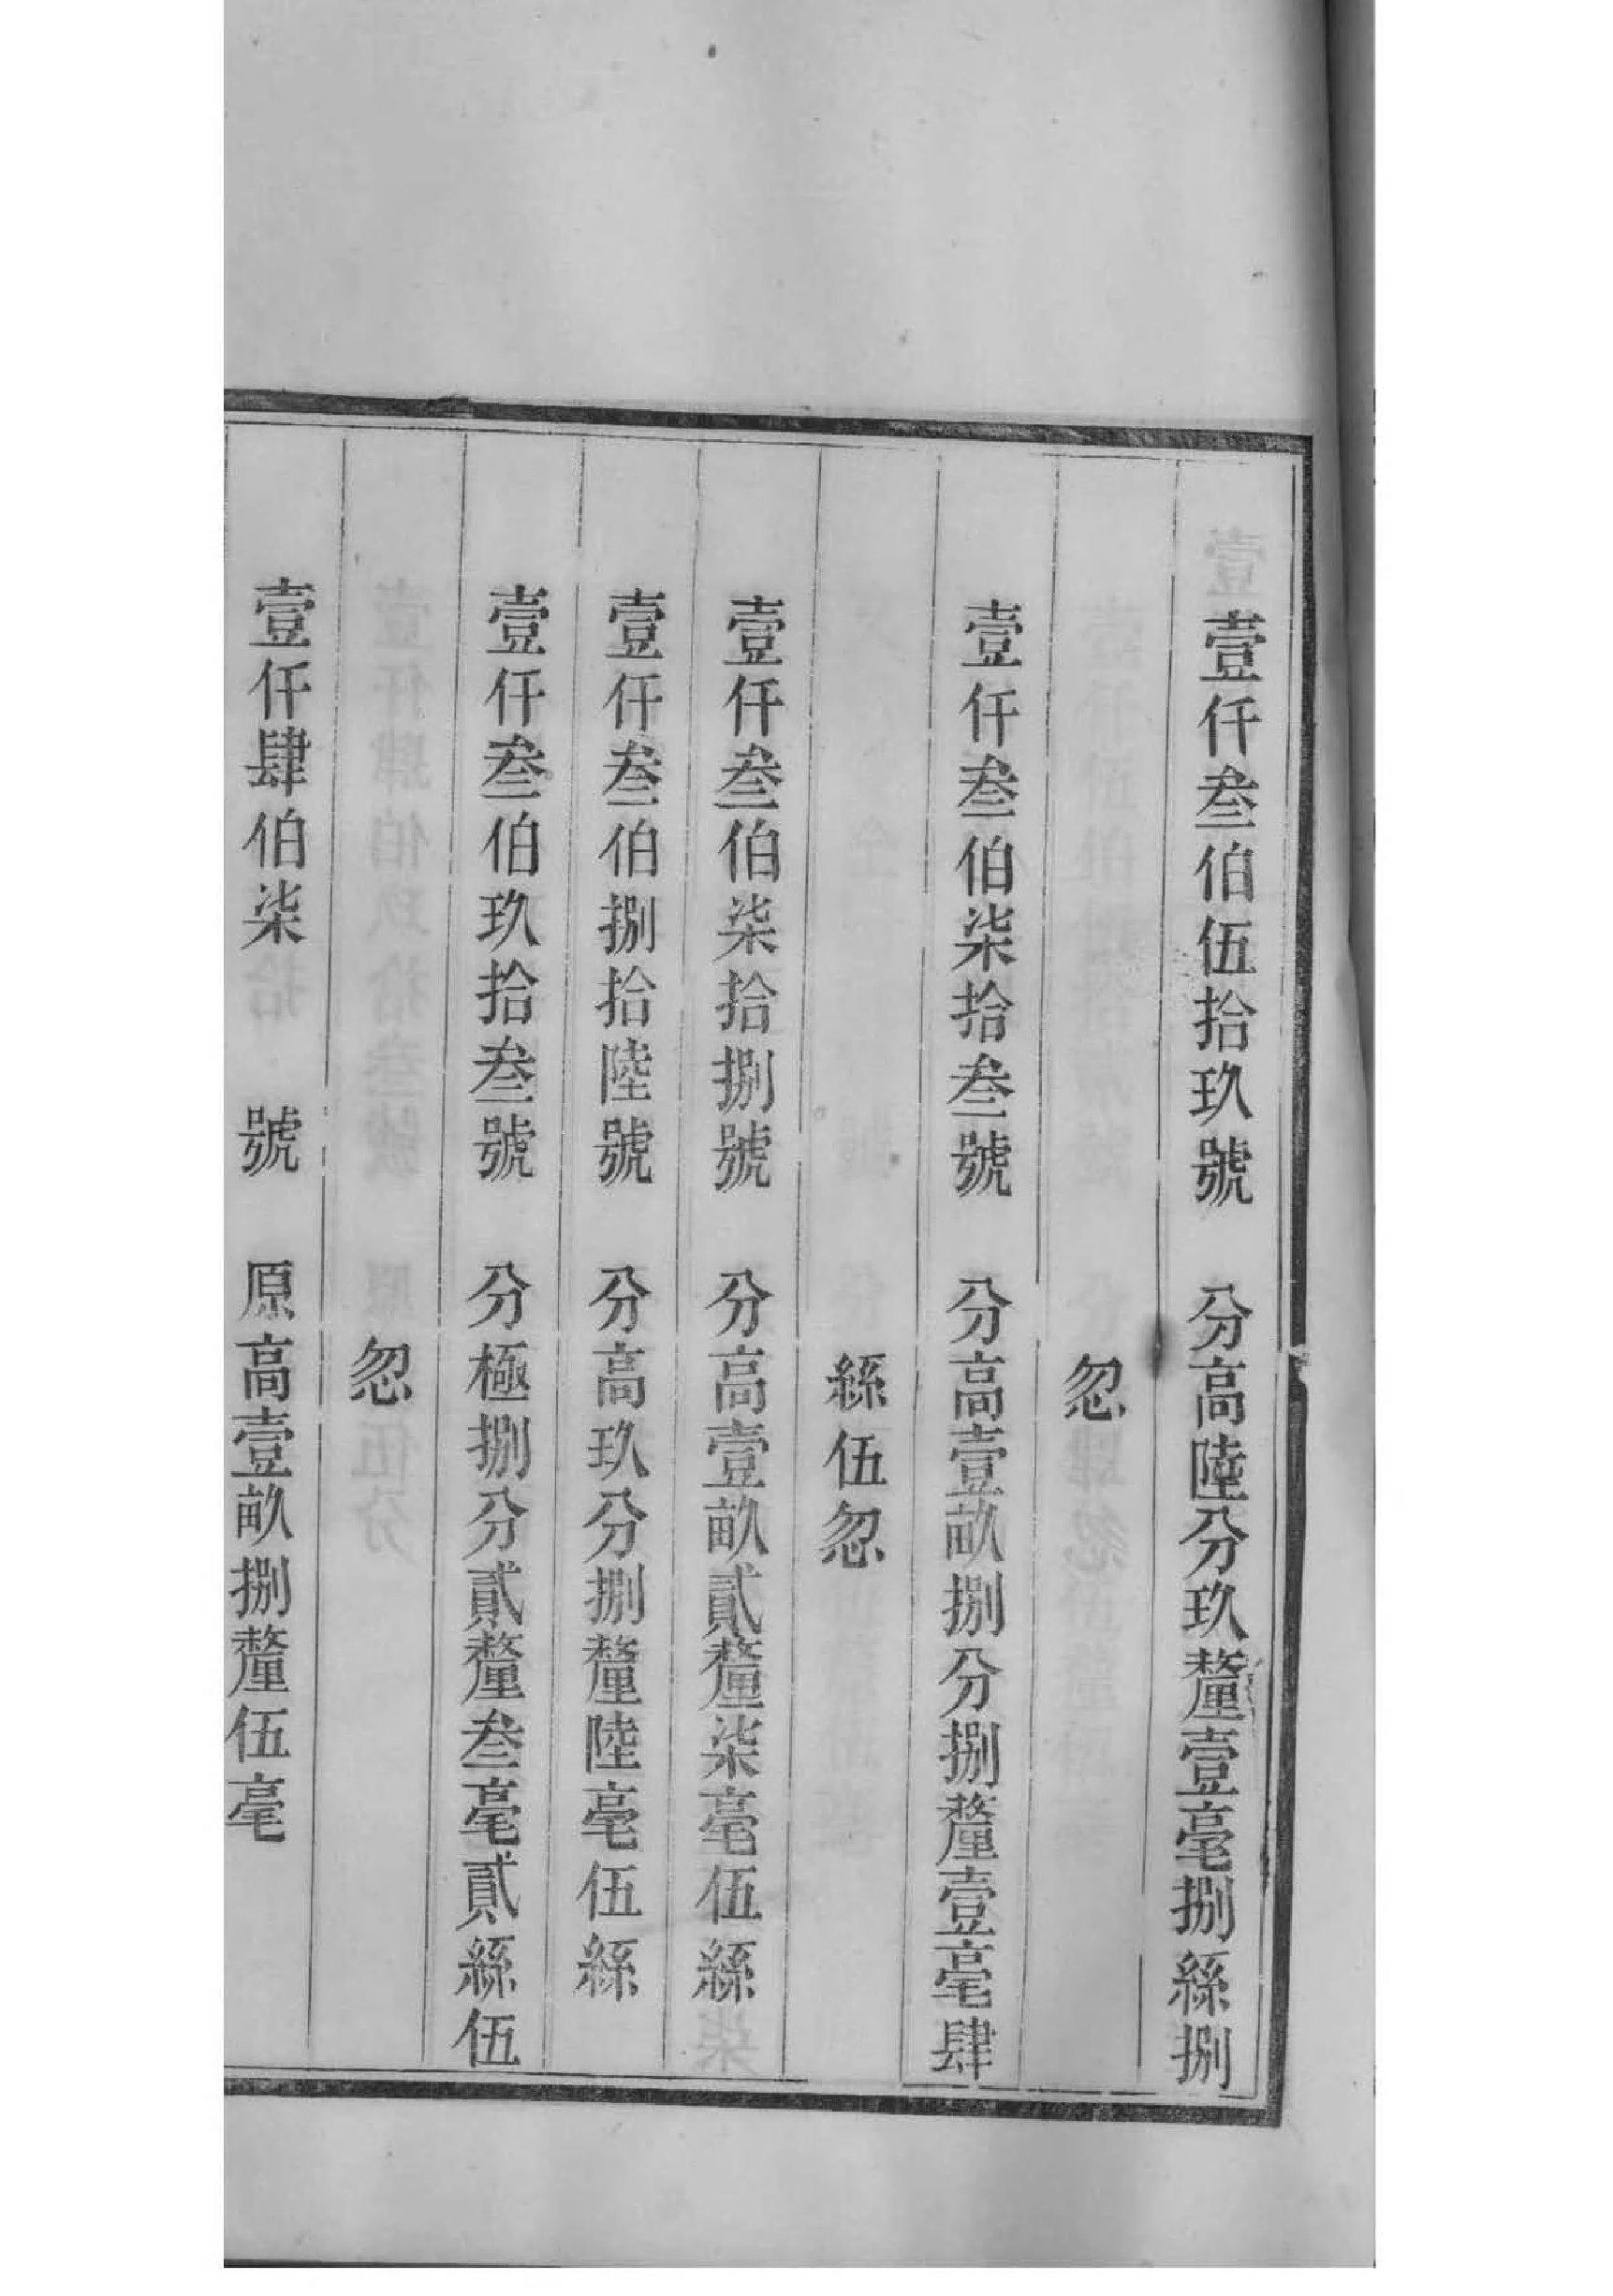 壹仟叁伯伍拾玖號　分高陸分玖釐壹毫捌絲捌
忽
壹仟叁伯柒拾叁號　分高壹畝捌分捌釐壹毫肆
絲伍忽
壹仟叁伯柒拾捌號　分高壹畝貳釐柒毫伍絲
壹仟叁伯捌拾陸號　分高玖分捌釐陸毫伍絲
壹仟叁伯玖拾叁號　分極捌分貳釐叁毫貳絲伍
忽
壹仟肆伯柒　號　原高壹畝捌釐伍毫